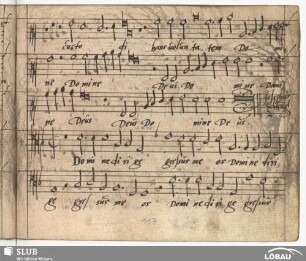 custo di hanc volun ta tem Do
ne Domine De us Do mi ne Domi
ne Deus Deus Do mine De us.
Domi ne di ri ge gressus me os Domine diri
ge gres sus me os Domi ne di ri ge gressus
SLUB
Wir führen Wissen.
LÖBAU